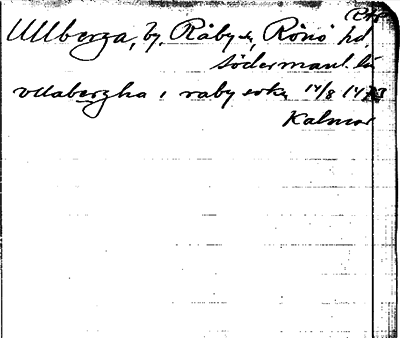 Ullberga, by, Råby sn, Rönö hd.
södermanl. län
vllabergha i raby sokn 14/8 1473
Kalmar